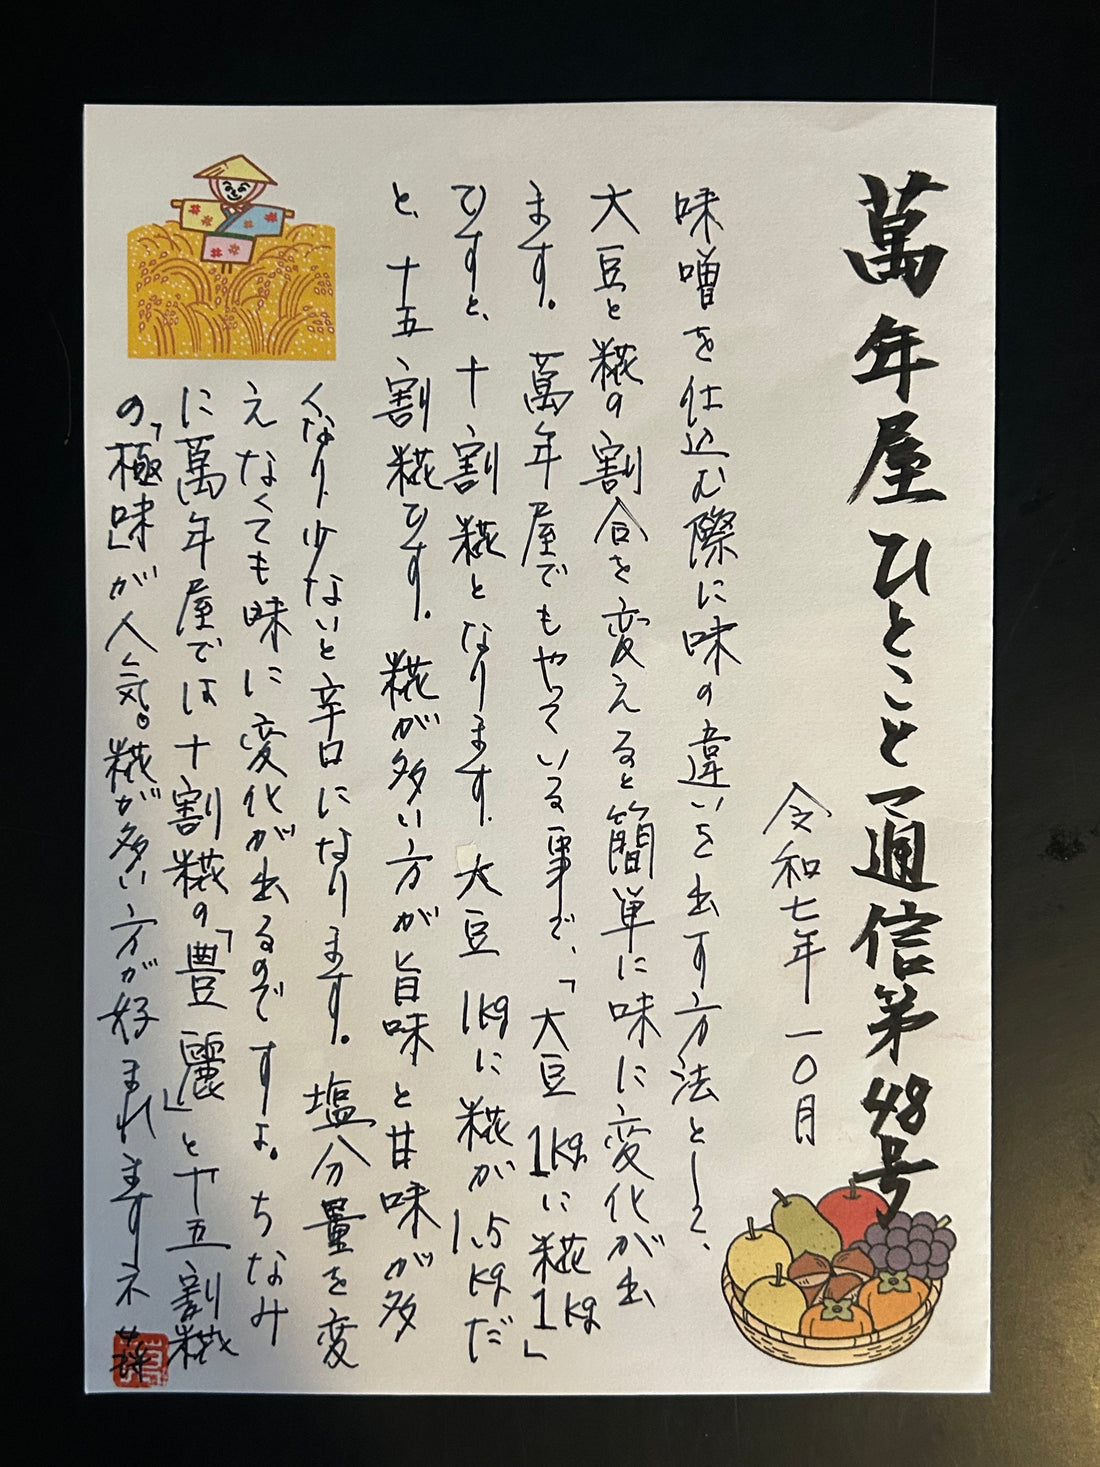 萬年屋ひとこと通信第48号
令和七年一〇月
味噌を仕込む際に味の違いを出す方法として、
大豆と糀の割合を変えると簡単に味に変化が出
ます。萬年屋でもやっている事で、「大豆1kgに糀1kg」
ですと、十割糀となります。大豆1kgに糀が1.5kgだ
と、十五割糀です。糀が多い方が旨味と甘味が多
くなり、少ないと辛口になります。塩分量を変
えなくても味に変化が出るのですよ。ちなみ
に萬年屋では十割糀の「豊麗」と十五割糀
の「極味」が人気。糀が多い方が好まれますネ